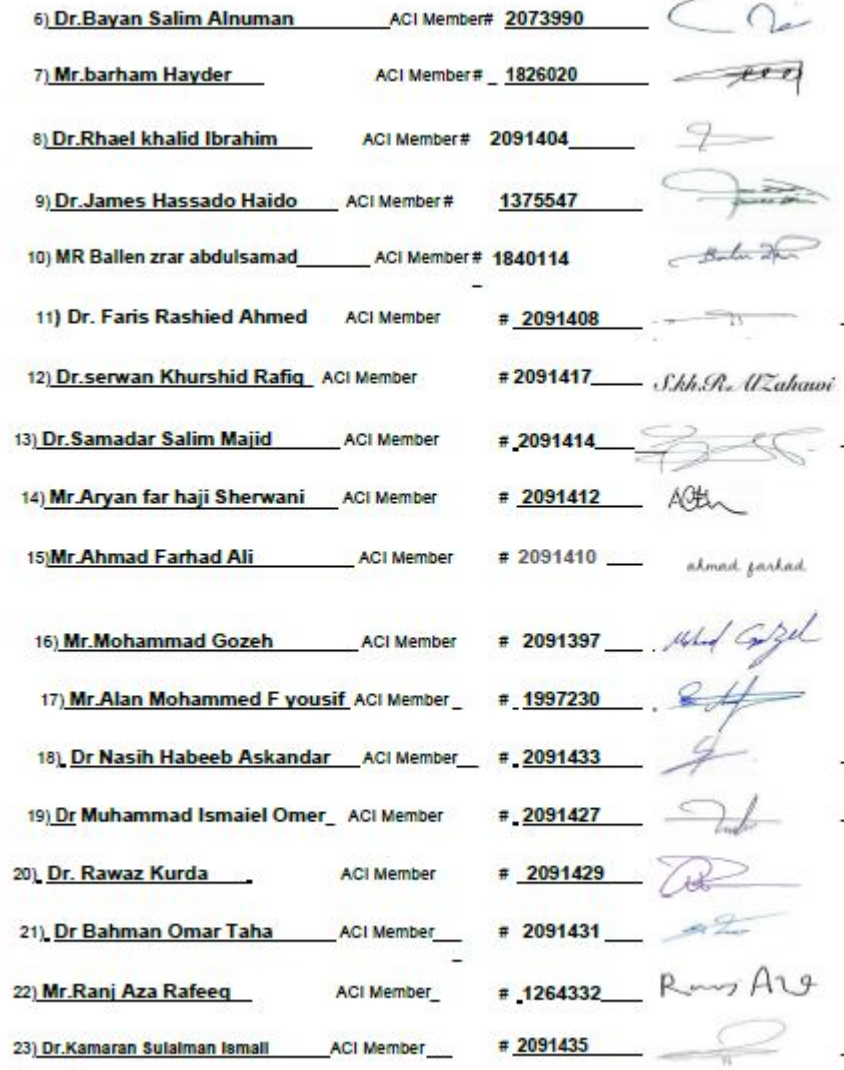 6) Dr.Bayan Salim Alnuman ACI Member# 2073990
7) Mr.barham Hayder ACI Member# _ 1826020
8) Dr.Rhael khalid Ibrahim ACI Member# 2091404
9) Dr.James Hassado Haido ACI Member# 1375547
10) MR Ballen zrar abdulsamad ACI Member# 1840114
11) Dr. Faris Rashied Ahmed ACI Member # 2091408
12) Dr.serwan Khurshid Rafiq ACI Member # 2091417 S.kh.R. AlZahawi
13) Dr.Samadar Salim Majid ACI Member # 2091414
14) Mr.Aryan far haji Sherwani ACI Member # 2091412
15)Mr.Ahmad Farhad Ali ACI Member # 2091410 ahmad farhad
16) Mr.Mohammad Gozeh ACI Member # 2091397
17) Mr.Alan Mohammed F yousif ACI Member _ # 1997230
18) Dr Nasih Habeeb Askandar ACI Member # 2091433
19) Dr Muhammad Ismaiel Omer_ ACI Member # 2091427
20) Dr. Rawaz Kurda ACI Member # 2091429
21) Dr Bahman Omar Taha ACI Member # 2091431
22) Mr.Ranj Aza Rafeeq ACI Member_ # 1264332 Ranj Aza
23) Dr.Kamaran Sulaiman Ismail ACI Member # 2091435